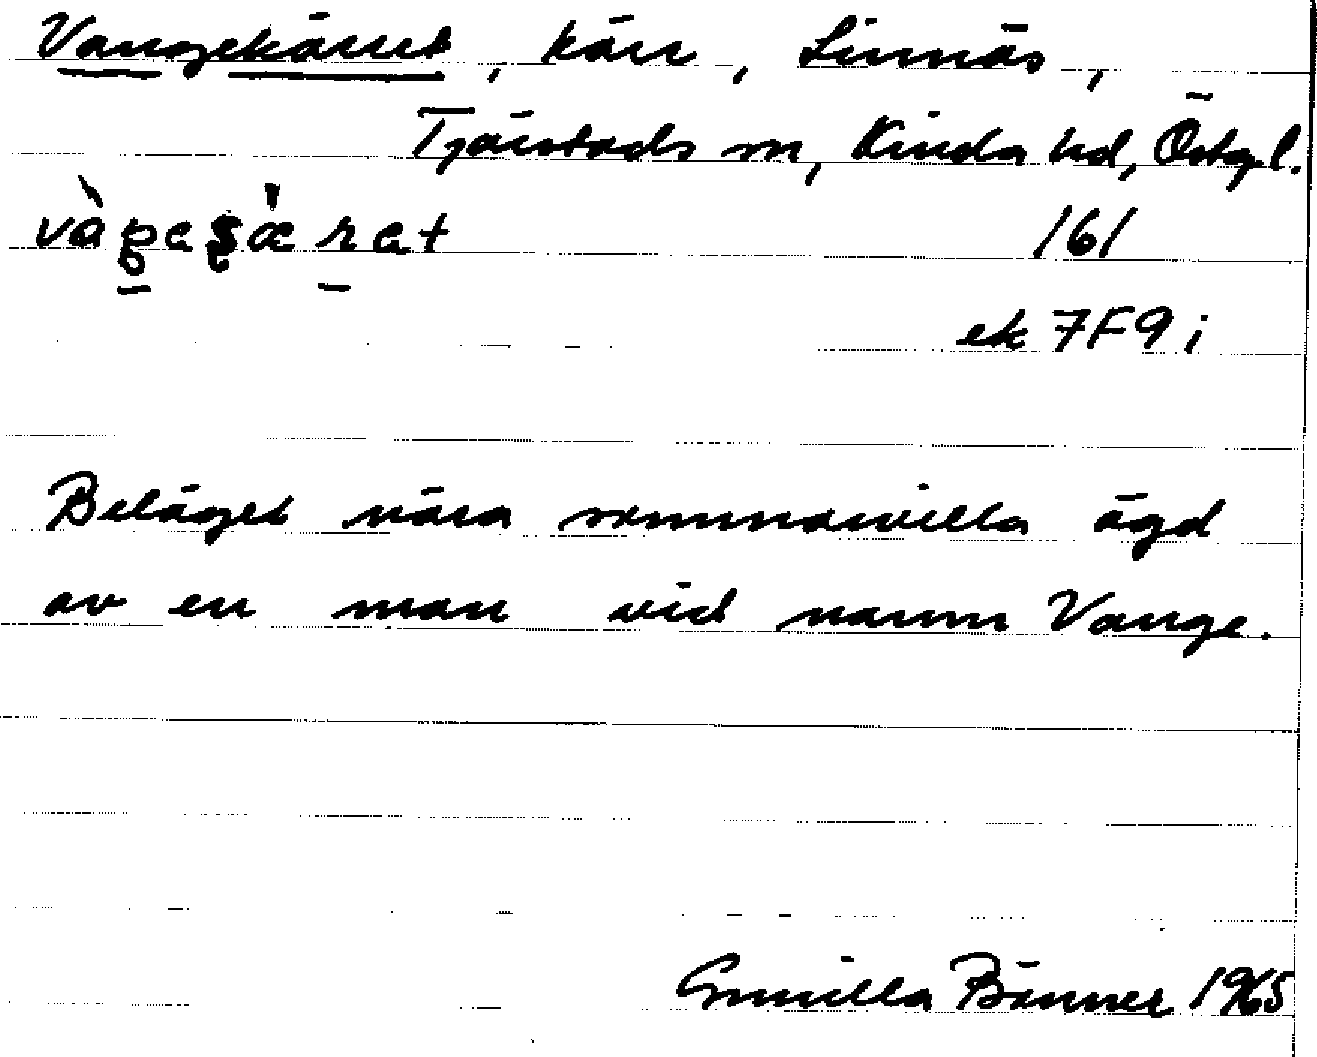 Vangekärret, kärr, Linnäs,
Tjärstads sn, Kinda hd, Östgl.
161
ek 7F9i
Beläget nära sommarvilla ägd
av en man vid namn Vange.
Gunilla Bänner 1965